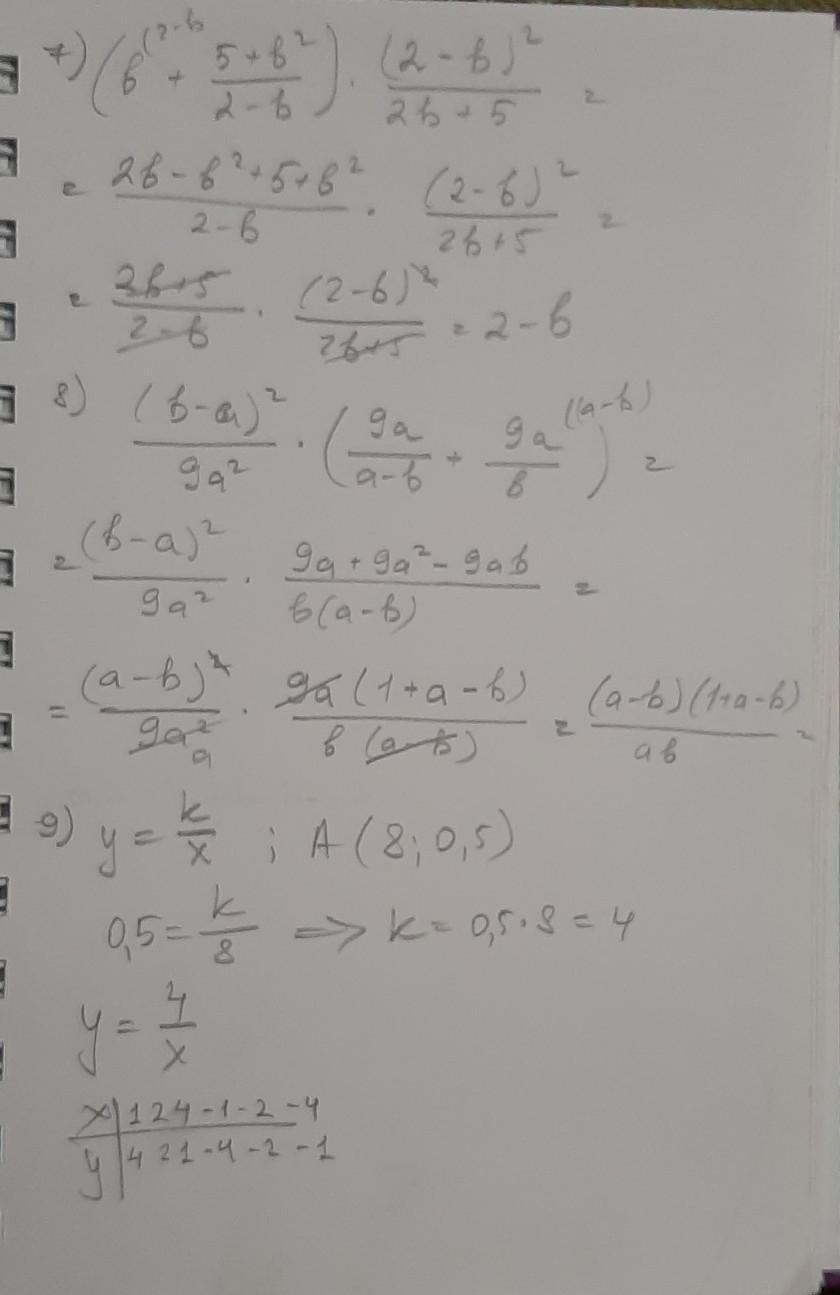 7) (b^(2-b + (5+b²)/(2-b)) · (2-b)²/(2b+5) =
= (2b-b²+5+b²)/(2-b) · (2-b)²/(2b+5) =
= (2b+5)/(2-b) · (2-b)²/(2b+5) = 2-b
8) (b-a)²/9a² · (9a/(a-b) + 9a^((a-b)/b) =
= (b-a)²/9a² · (9a+9a²-9ab)/(b(a-b)) =
= (a-b)²/9a² a · 9a(1+a-b)/(b(a-b)) = (a-b)(1+a-b)/ab =
9) y = k/x ; A(8;0,5)
0,5 = k/8 ⟹ k = 0,5·8 = 4
y = 4/x
x | 1 2 4 -1 -2 -4
y | 4 2 1 -4 -2 -1